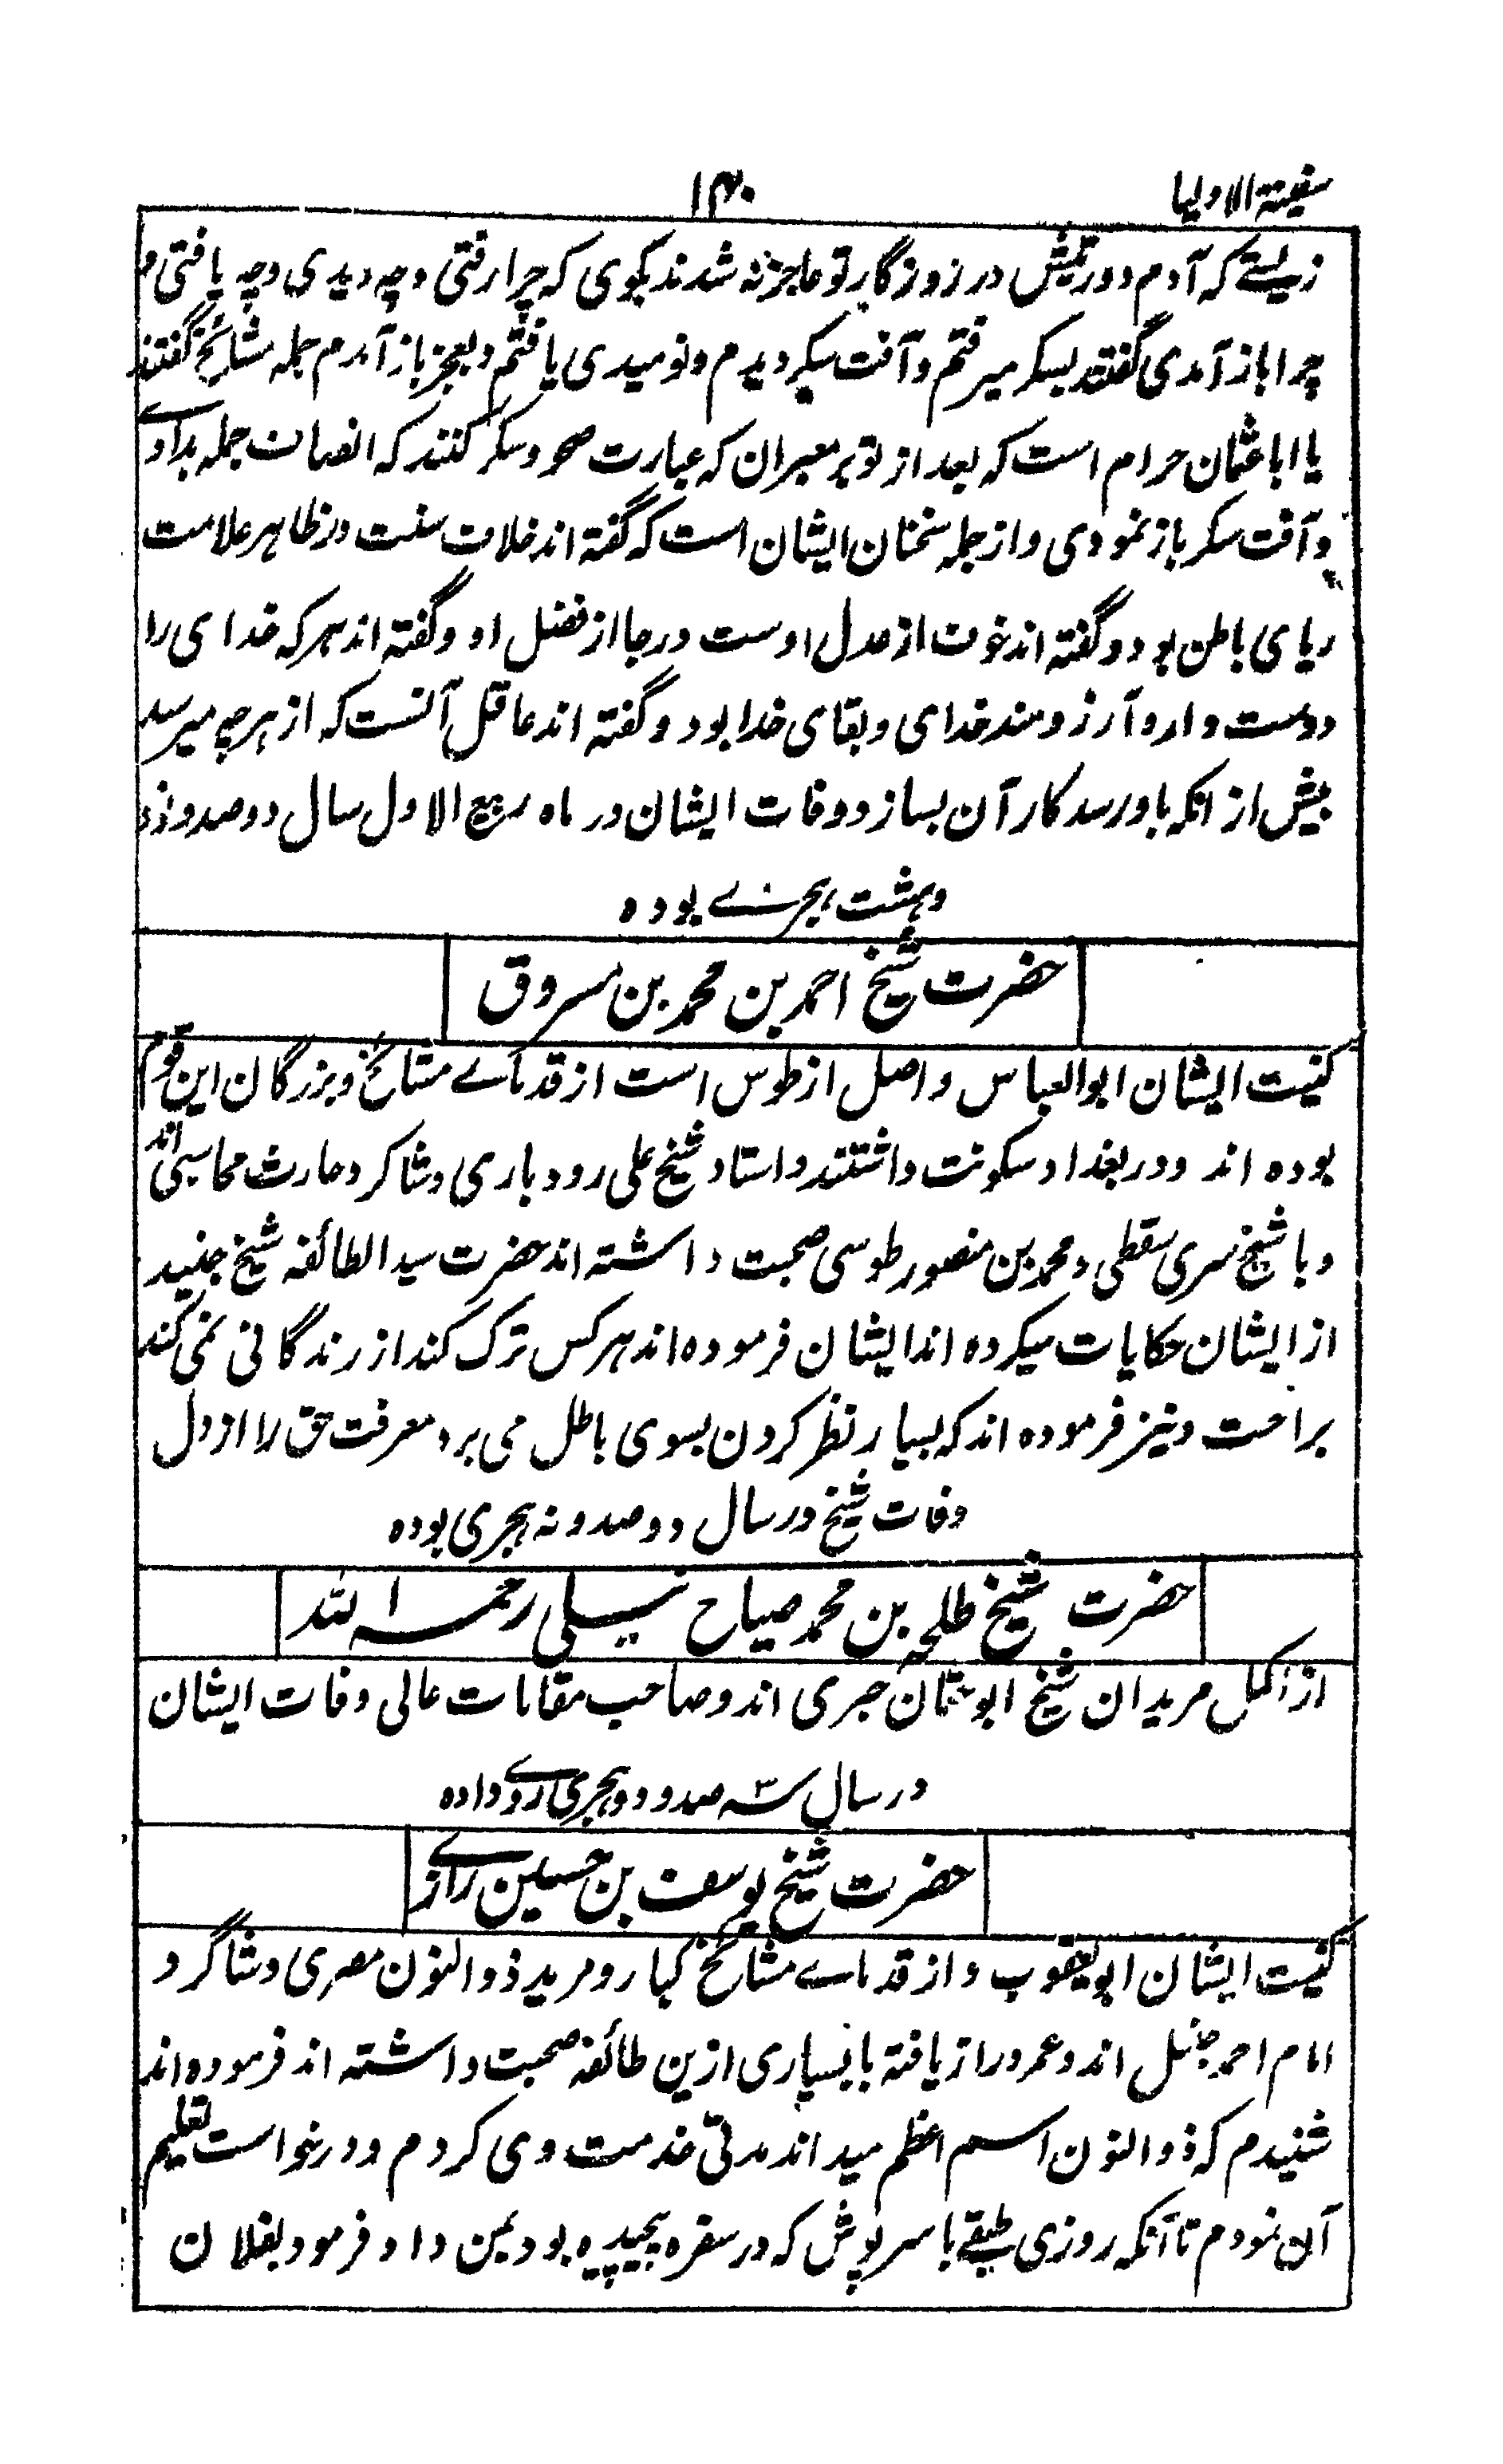 سفینة الاولیا ۱۴۰
زیستے کہ آدم دورتیش در روزگار تو عاجز نہ شدند بگوی کہ چرا رفتی وچہ دیدی وچہ یافتی و
چرا باز آمدی گفتند بسکر میرفتم وآفت سکر دیدم ونومیدی یافتم وبعجز باز آمدم جملہ مشائخ گفتند
یا ابا عثمان حرام است کہ بعد از تو بر معبران کہ عبارت صحو وسکر کنند کہ انصاف جملہ بدادے
وآفت سکر باز نمودی واز جملہ سخنان ایشان است کہ گفتہ اند خلاف سنت در ظاہر علامت
ریای باطن بود وگفتہ اند خوف از عدل اوست ورجا از فضل او وگفتہ اند ہر کہ خدای را
دوست دارد آرزومند خدای وبقای خدا بود وگفتہ اند عاقل آنست کہ از ہرچہ میرسد
بیش از انکہ باو رسد کار آن بسازد وفات ایشان در ماہ ربیع الاول سال دوصد ونود
وہشت ہجرے بودہ
حضرت شیخ احمد بن محمد بن مسروق
کنیت ایشان ابو العباس واصل از طوس است از قدماے مشائخ وبزرگان این قوم
بودہ اند ودر بغداد سکونت داشتند واستاد شیخ علی رودباری وشاگرد حارث محاسبی اند
وبا شیخ سری سقطی ومحمد بن منصور طوسی صحبت داشتہ اند حضرت سید الطائفہ شیخ جنید
از ایشان حکایات میکردہ اند ایشان فرمودہ اند ہرکس ترک کند از زندگانی نمی کند
براحت ونیز فرمودہ اند کہ بسیار نظر کردن بسوی باطل می برد معرفت حق را از دل
وفات شیخ در سال دوصد ونہ ہجری بودہ
حضرت شیخ طلحہ بن محمد صباح نیلی رحمہ اللہ
از اکمل مریدان شیخ ابو عثمان حیری اند وصاحب مقامات عالی وفات ایشان
در سال سہ صد ودو ہجری روے دادہ
حضرت شیخ یوسف بن حسین رازے
کنیت ایشان ابو یعقوب واز قدماے مشائخ کبار ومرید ذو النون مصری وشاگرد
امام احمد حنبل اند وعمر دراز یافتہ با بسیاری ازین طائفہ صحبت داشتہ اند فرمودہ اند
شنیدم کہ ذو النون اسم اعظم میداند مدتی خدمت وی کردم ودرخواست تعلیم
آن نمودم تا آنکہ روزی طبقے با سرپوش کہ در سفرہ پیچیدہ بود بمن داد وفرمود بفلان